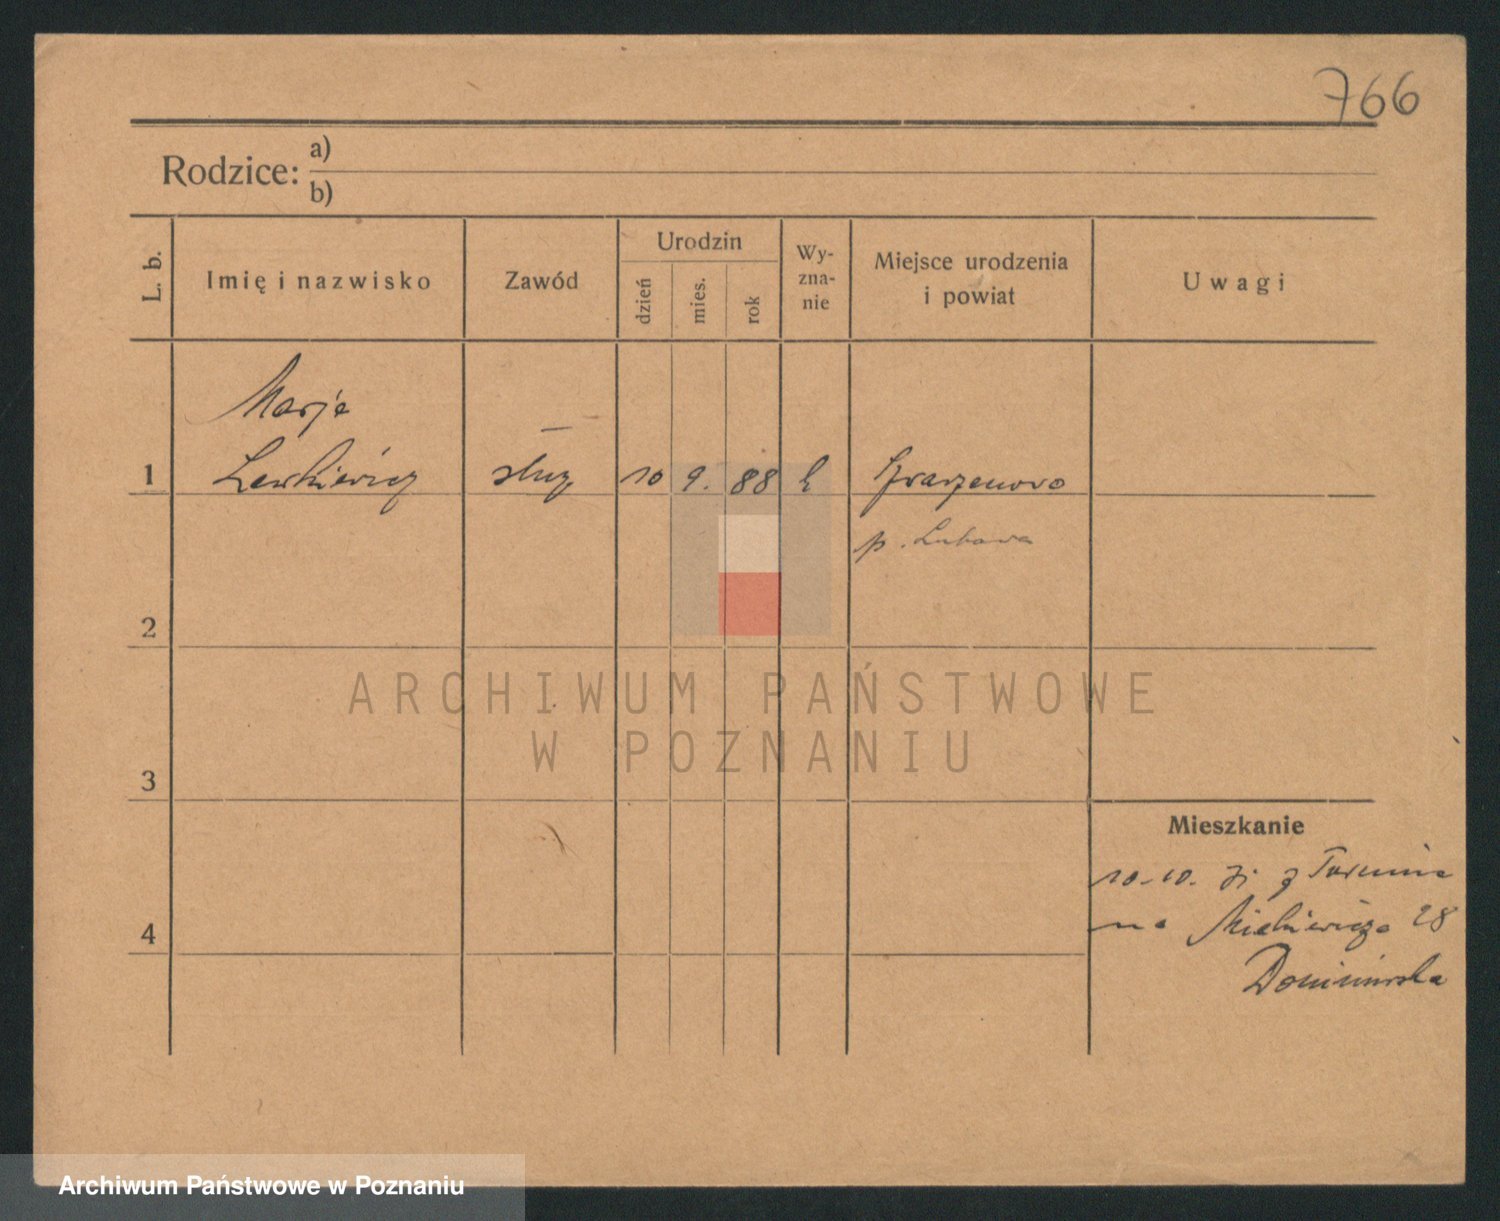 766
Rodzice: a)
b)
L. b.
Imię i nazwisko
Zawód
Urodzin
dzień
mies.
rok
Wy-
zna-
nie
Miejsce urodzenia
i powiat
Uwagi
Marja
1 Lewkiewicz służ 10 9. 88 k
p. Lubawa
2
3
4
Mieszkanie
10.10. z Torunia
na Mickiewicza 28
ARCHIWUM PAŃSTWOWE
W POZNANIU
Archiwum Państwowe w Poznaniu